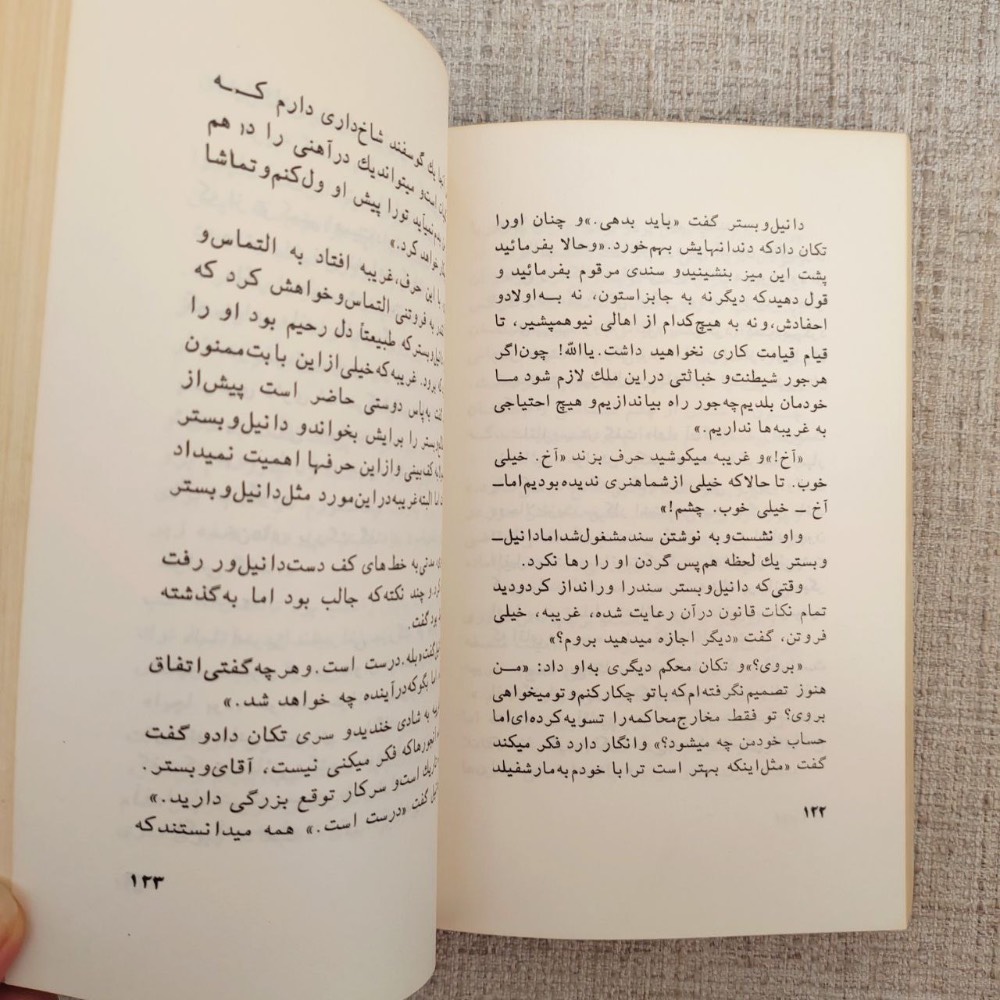 دانیل‌وبستر گفت «باید بدهی.» و چنان اورا
تکان دادکه دندانهایش بهم‌خورد. «وحالا بفرمائید
پشت این میز بنشینیدو سندی مرقوم بفرمائید و
قول دهیدکه دیگر نه به جابزاستون، نه بـه‌اولادو
احفادش، ونه به هیچ‌کدام از اهالی نیوهمپشیر، تا
قیام قیامت کاری نخواهید داشت. یاالله! چون‌اگر
هرجور شیطنت و خباثتی دراین ملك لازم شود مـا
خودمان بلدیم‌چه‌جور راه بیاندازیم‌و هیچ احتیاجی
به غریبه‌ها نداریم.»
«آخ!» و غریبه میکوشید حرف بزند «آخ. خیلی
خوب. تا حالاکه خیلی ازشماهنری ندیده‌بودیم‌اماـ
آخ ـ خیلی خوب. چشم!»
واو نشست‌وبه نوشتن سندمشغول‌شداما دانیل‌ـ
وبستر یك لحظه هم‌پس گردن او را رها نکرد.
وقتی‌که دانیل‌وبستر سندرا ورانداز کردودید
تمام نکات قانون درآن رعایت شده، غریبه، خیلی
فروتن، گفت «دیگر اجازه میدهید بروم؟»
«بروی؟»و تکان محکم دیگری به‌او داد: «مـن
هنوز تصمیم نگرفته‌ام‌که باتو چکارکنم‌وتو میخواهی
بروی؟ تو فقط مخارج‌محاکمه‌را تسویه کرده‌ای‌اما
حساب خودمن چه میشود؟» وانگار دارد فکر میکند
گفت «مثل‌اینکه بهتر است ترا با خودم به‌مارشفیلد
۱۲۲
یك گوسفند شاخ‌داری دارم کـــه
است‌و میتواندیك درآهنی را در هم
تورا پیش او ول‌کنم‌وتماشا
خواهد کرد.»
با این حرف، غریبه افتاد به التماس‌و
به فروتنی التماس‌وخواهش کرد که
دل رحیم بود او را
برود. غریبه‌که خیلی‌از این بابت ممنون
به‌پاس دوستی حاضر است پیش‌از
را برایش بخواندو دانیل‌وبستر
به کف‌بینی وازاین حرفها اهمیت نمیداد
البته غریبه‌دراین‌مورد مثل دانیل‌وبستر
مدتی به خط‌های کف دست‌دانیل‌ور رفت
و چند نکته‌که جالب بود اما به‌گذشته
گفت.
گفت «بله. درست است. وهرچه‌گفتی اتفاق
بگوکه درآینده چه خواهد شد.»
به شادی خندیدو سری تکان دادو گفت
فکر میکنی نیست، آقای‌وبستر.
است‌و سرکار توقع بزرگی دارید.»
گفت «درست است.» همه میدانستندکه
۱۲۳